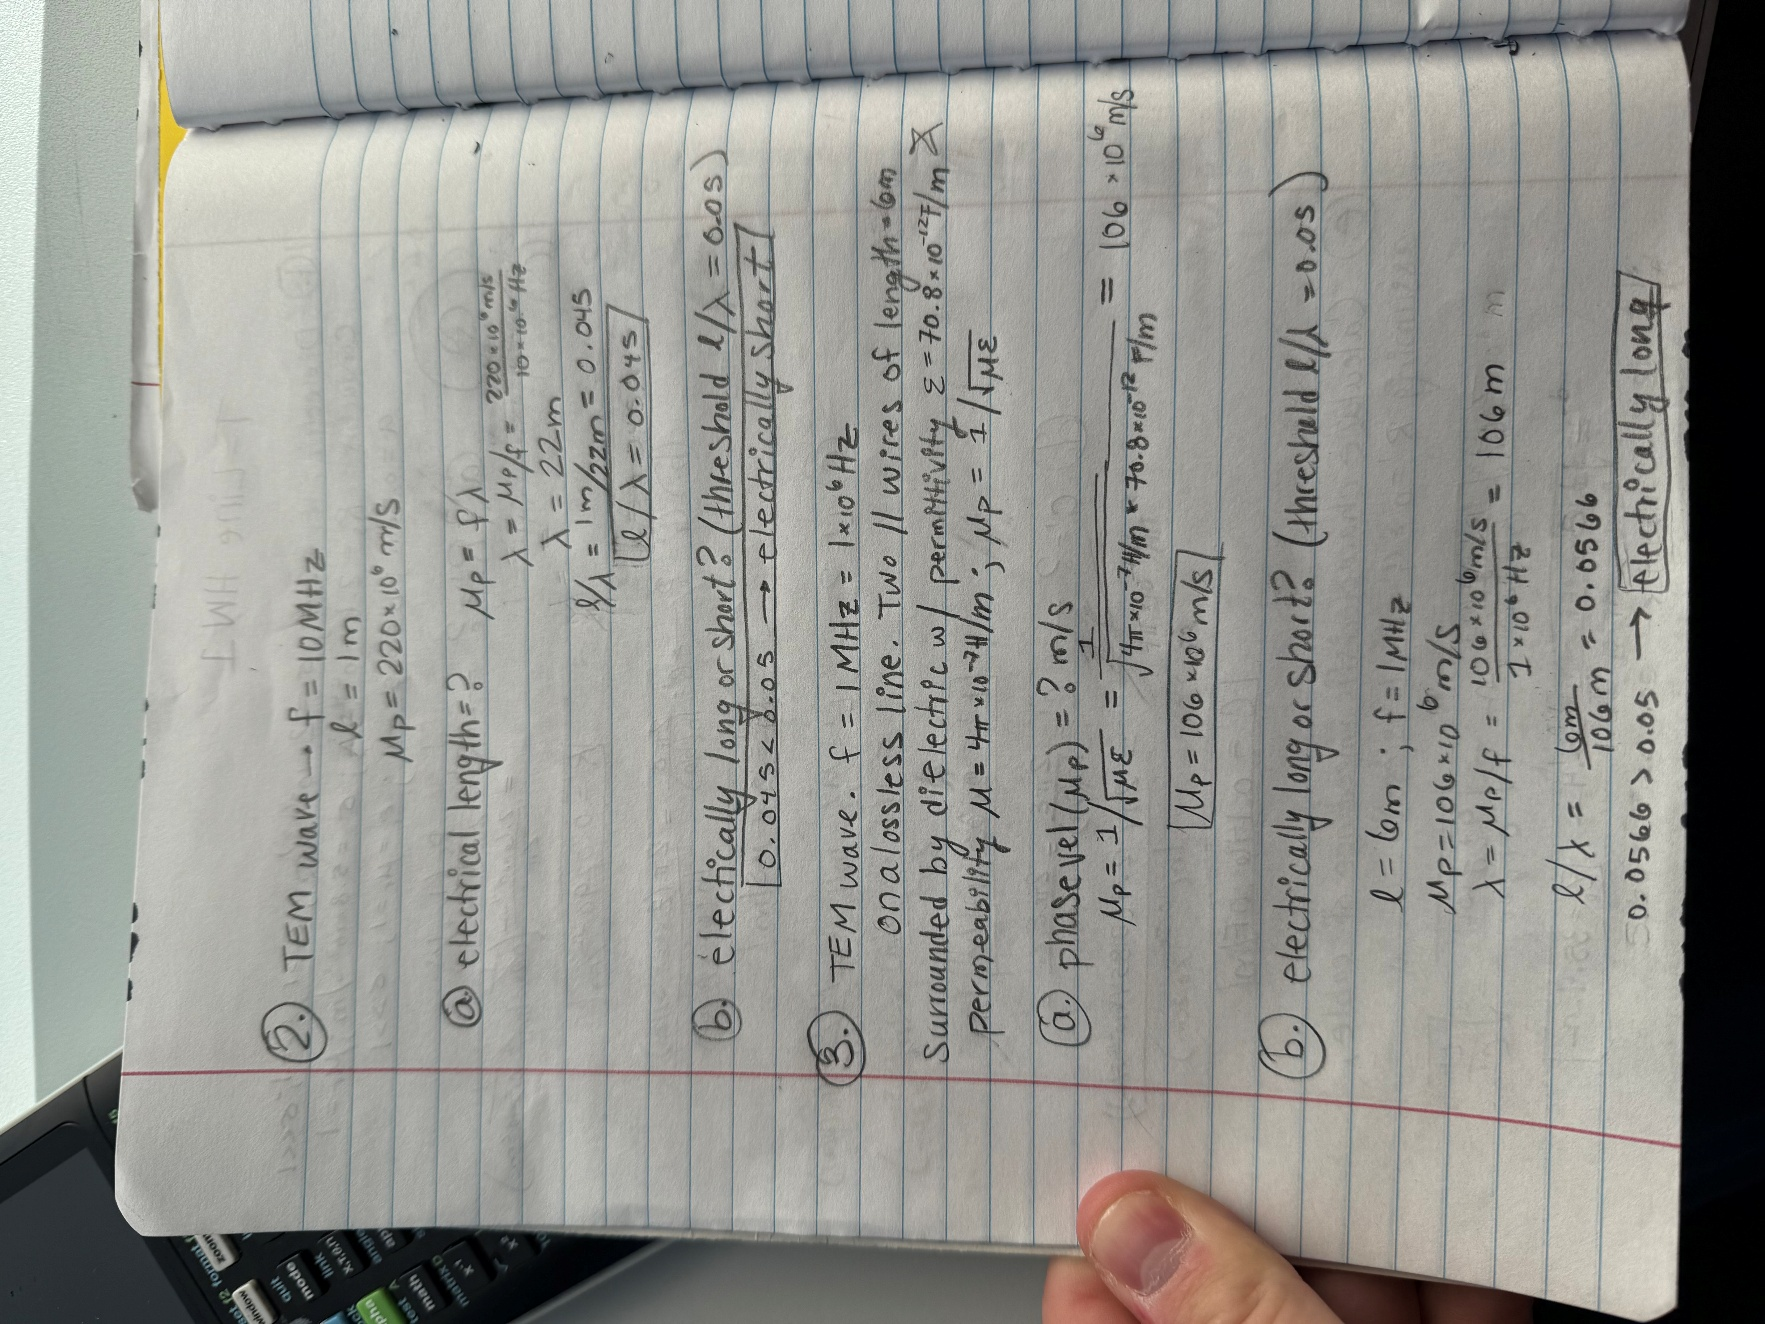 HW I
2. TEM wave → f = 10MHz
l = 1m
μp = 220×10⁶ m/s
a. electrical length = ? μp = fλ
λ = μp/f = 220×10⁶ m/s / 10×10⁶ Hz
λ = 22m
l/λ = 1m/22m = 0.045
l/λ = 0.045
b. electrically long or short? (threshold l/λ = 0.05)
0.045 < 0.05 → electrically short
3. TEM wave. f = 1MHz = 1×10⁶ Hz
on a lossless line. Two // wires of length = 6m
Surrounded by dielectric w/ permittivity ε = 70.8×10⁻¹² F/m &
permeability μ = 4π×10⁻⁷ H/m ; μp = 1/√με
a. phase vel (μp) = ? m/s
μp = 1/√με = 1 / √4π×10⁻⁷ H/m * 70.8×10⁻¹² F/m = 106×10⁶ m/s
μp = 106×10⁶ m/s
b. electrically long or short? (threshold l/λ = 0.05)
l = 6m ; f = 1MHz
μp = 106×10⁶ m/s
λ = μp/f = 106×10⁶ m/s / 1×10⁶ Hz = 106 m
l/λ = 6m / 106m = 0.0566
0.0566 > 0.05 → electrically long
format
zoom
quit
mode
link
X,T,θ,n
angle
test
A
math
matrix
D
x⁻¹
x²